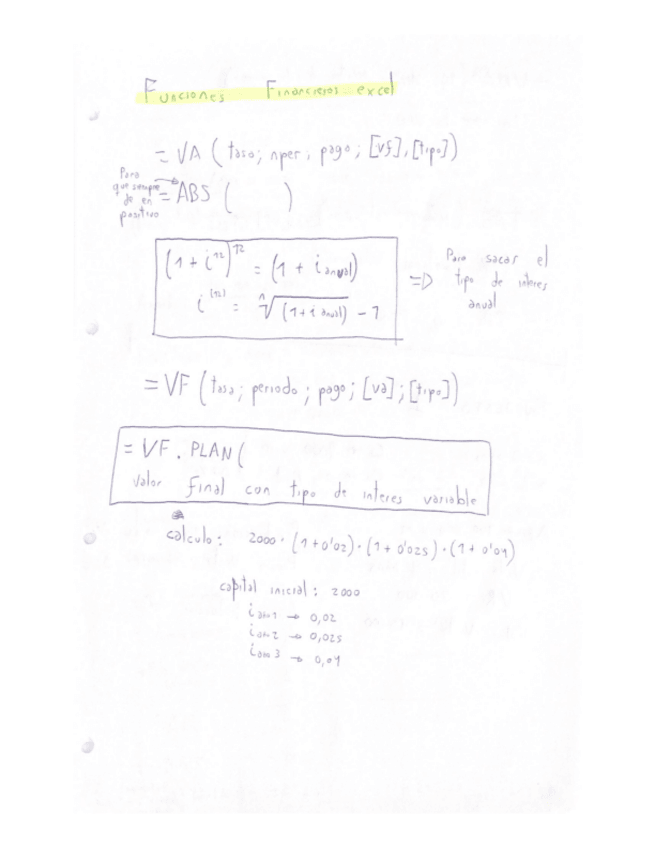 Funciones Financieros excel
= VA ( tasa; nper; pago; [vf], [tipo])
Para que siempre de en positivo
= ABS ( )
(1 + i^12)^12 = (1 + i anual)
i^(12) = ^12√(1+i anual) - 1
=> Para sacar el tipo de interes anual
= VF ( tasa; periodo; pago; [va]; [tipo])
= VF. PLAN(
valor final con tipo de interes variable
calculo: 2000 · (1+0'02) · (1+0'025) · (1+0'01)
capital inicial: 2000
i año 1 → 0,02
i año 2 → 0,025
i año 3 → 0,01